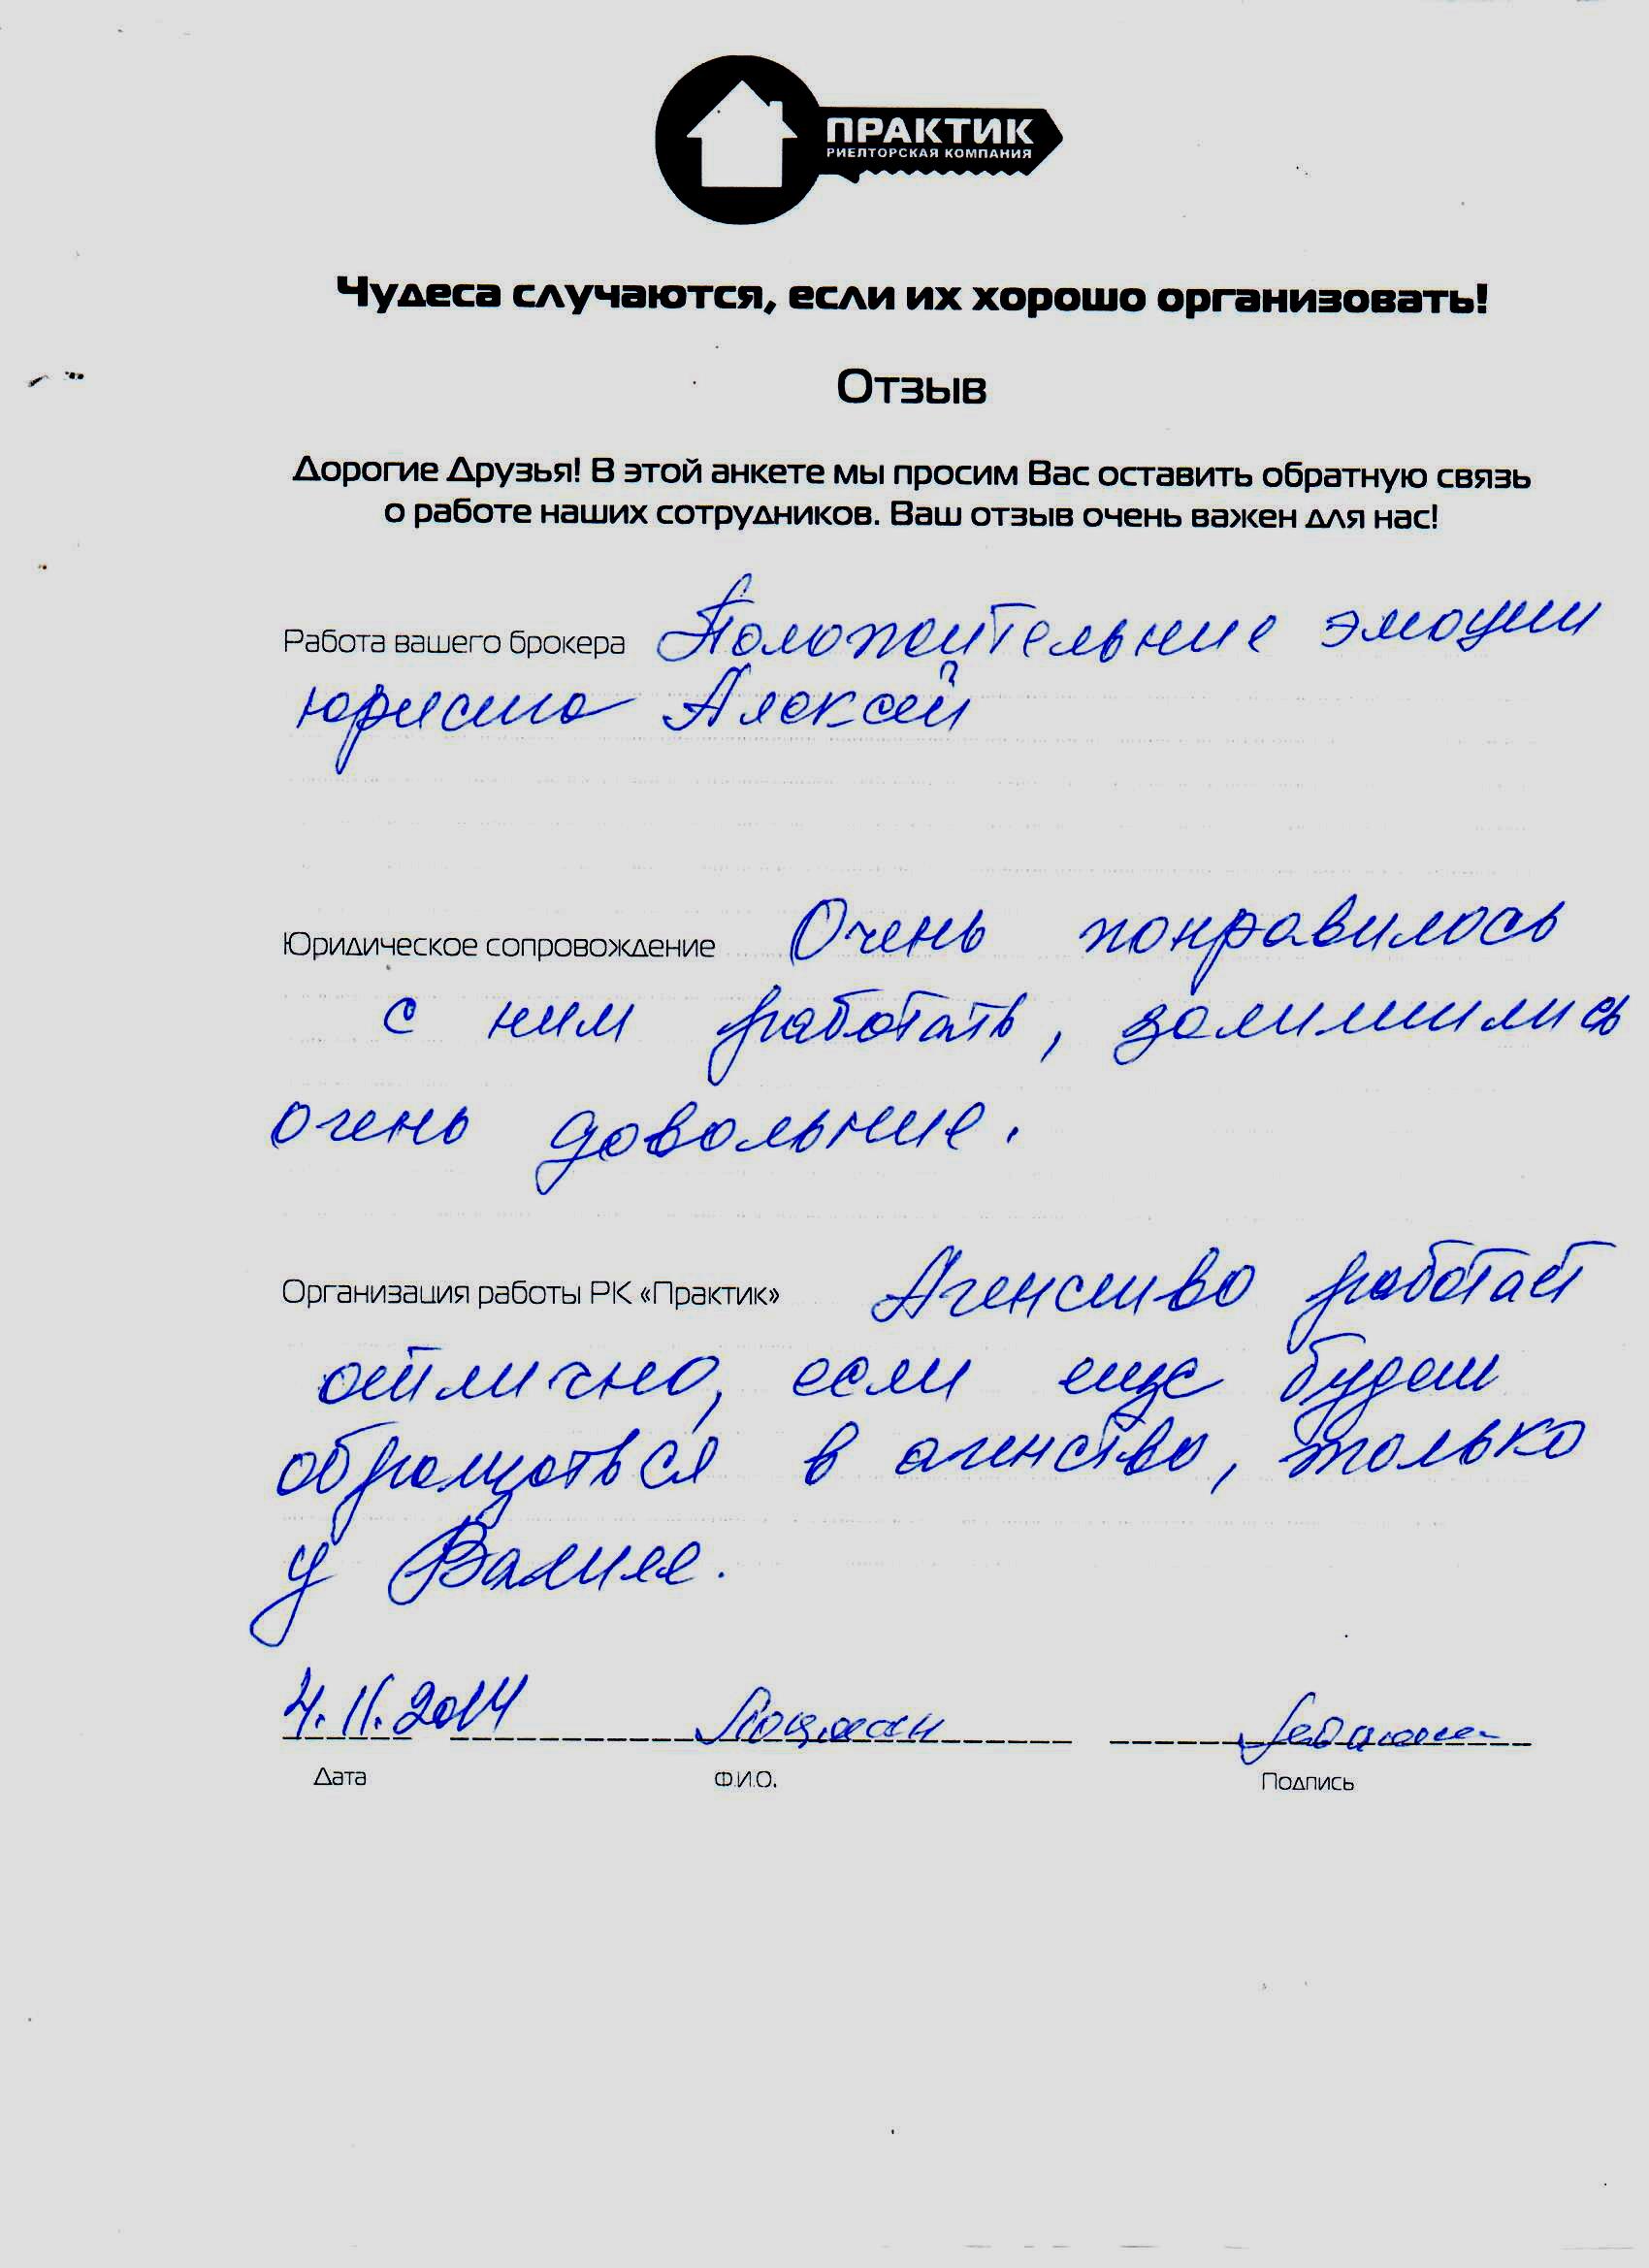 ПРАКТИК
РИЕЛТОРСКАЯ КОМПАНИЯ
Чудеса случаются, если их хорошо организовать!
Отзыв
Дорогие Друзья! В этой анкете мы просим Вас оставить обратную связь
о работе наших сотрудников. Ваш отзыв очень важен для нас!
Работа вашего брокера Положительные эмоции
юриста Алексей
Юридическое сопровождение Очень понравилось
с ним работать,
очень довольные.
Организация работы РК «Практик» Агенство работает
отлично, если еще будем
обращаться в агенство, только
у
4.11.2014 Лоцман
Дата Ф.И.О. Подпись